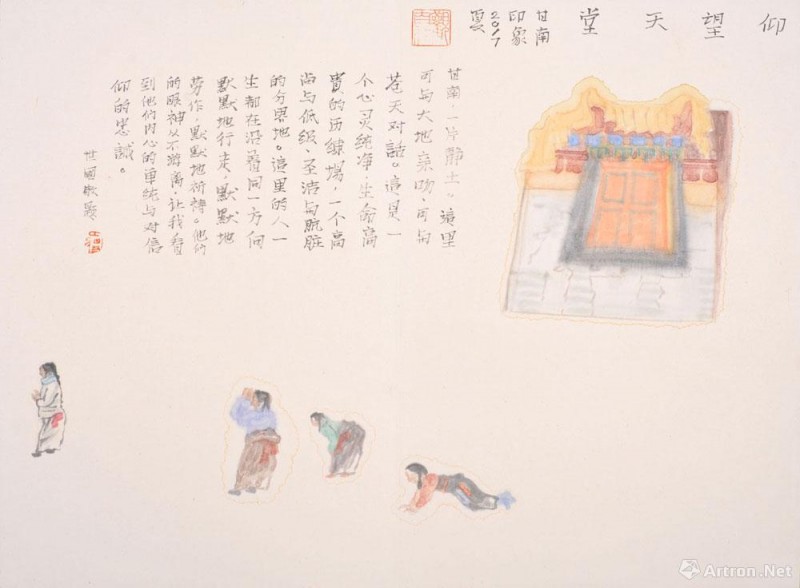 仰望天堂
甘南
印象
2017
雲
甘南一片静土。這里
可与大地亲吻,可与
苍天对話。這是一
个心灵纯净、生命高
貴的历練場,一个高
尚与低级、圣洁与肮脏
的分界地。這里的人一
生都在沿着同一方向
默默地行走,默默地
劳作,默默地祈禱。他们
的眼神从不游离,让我看
到他们内心的单纯与对信
仰的忠誠。
Artron.Net